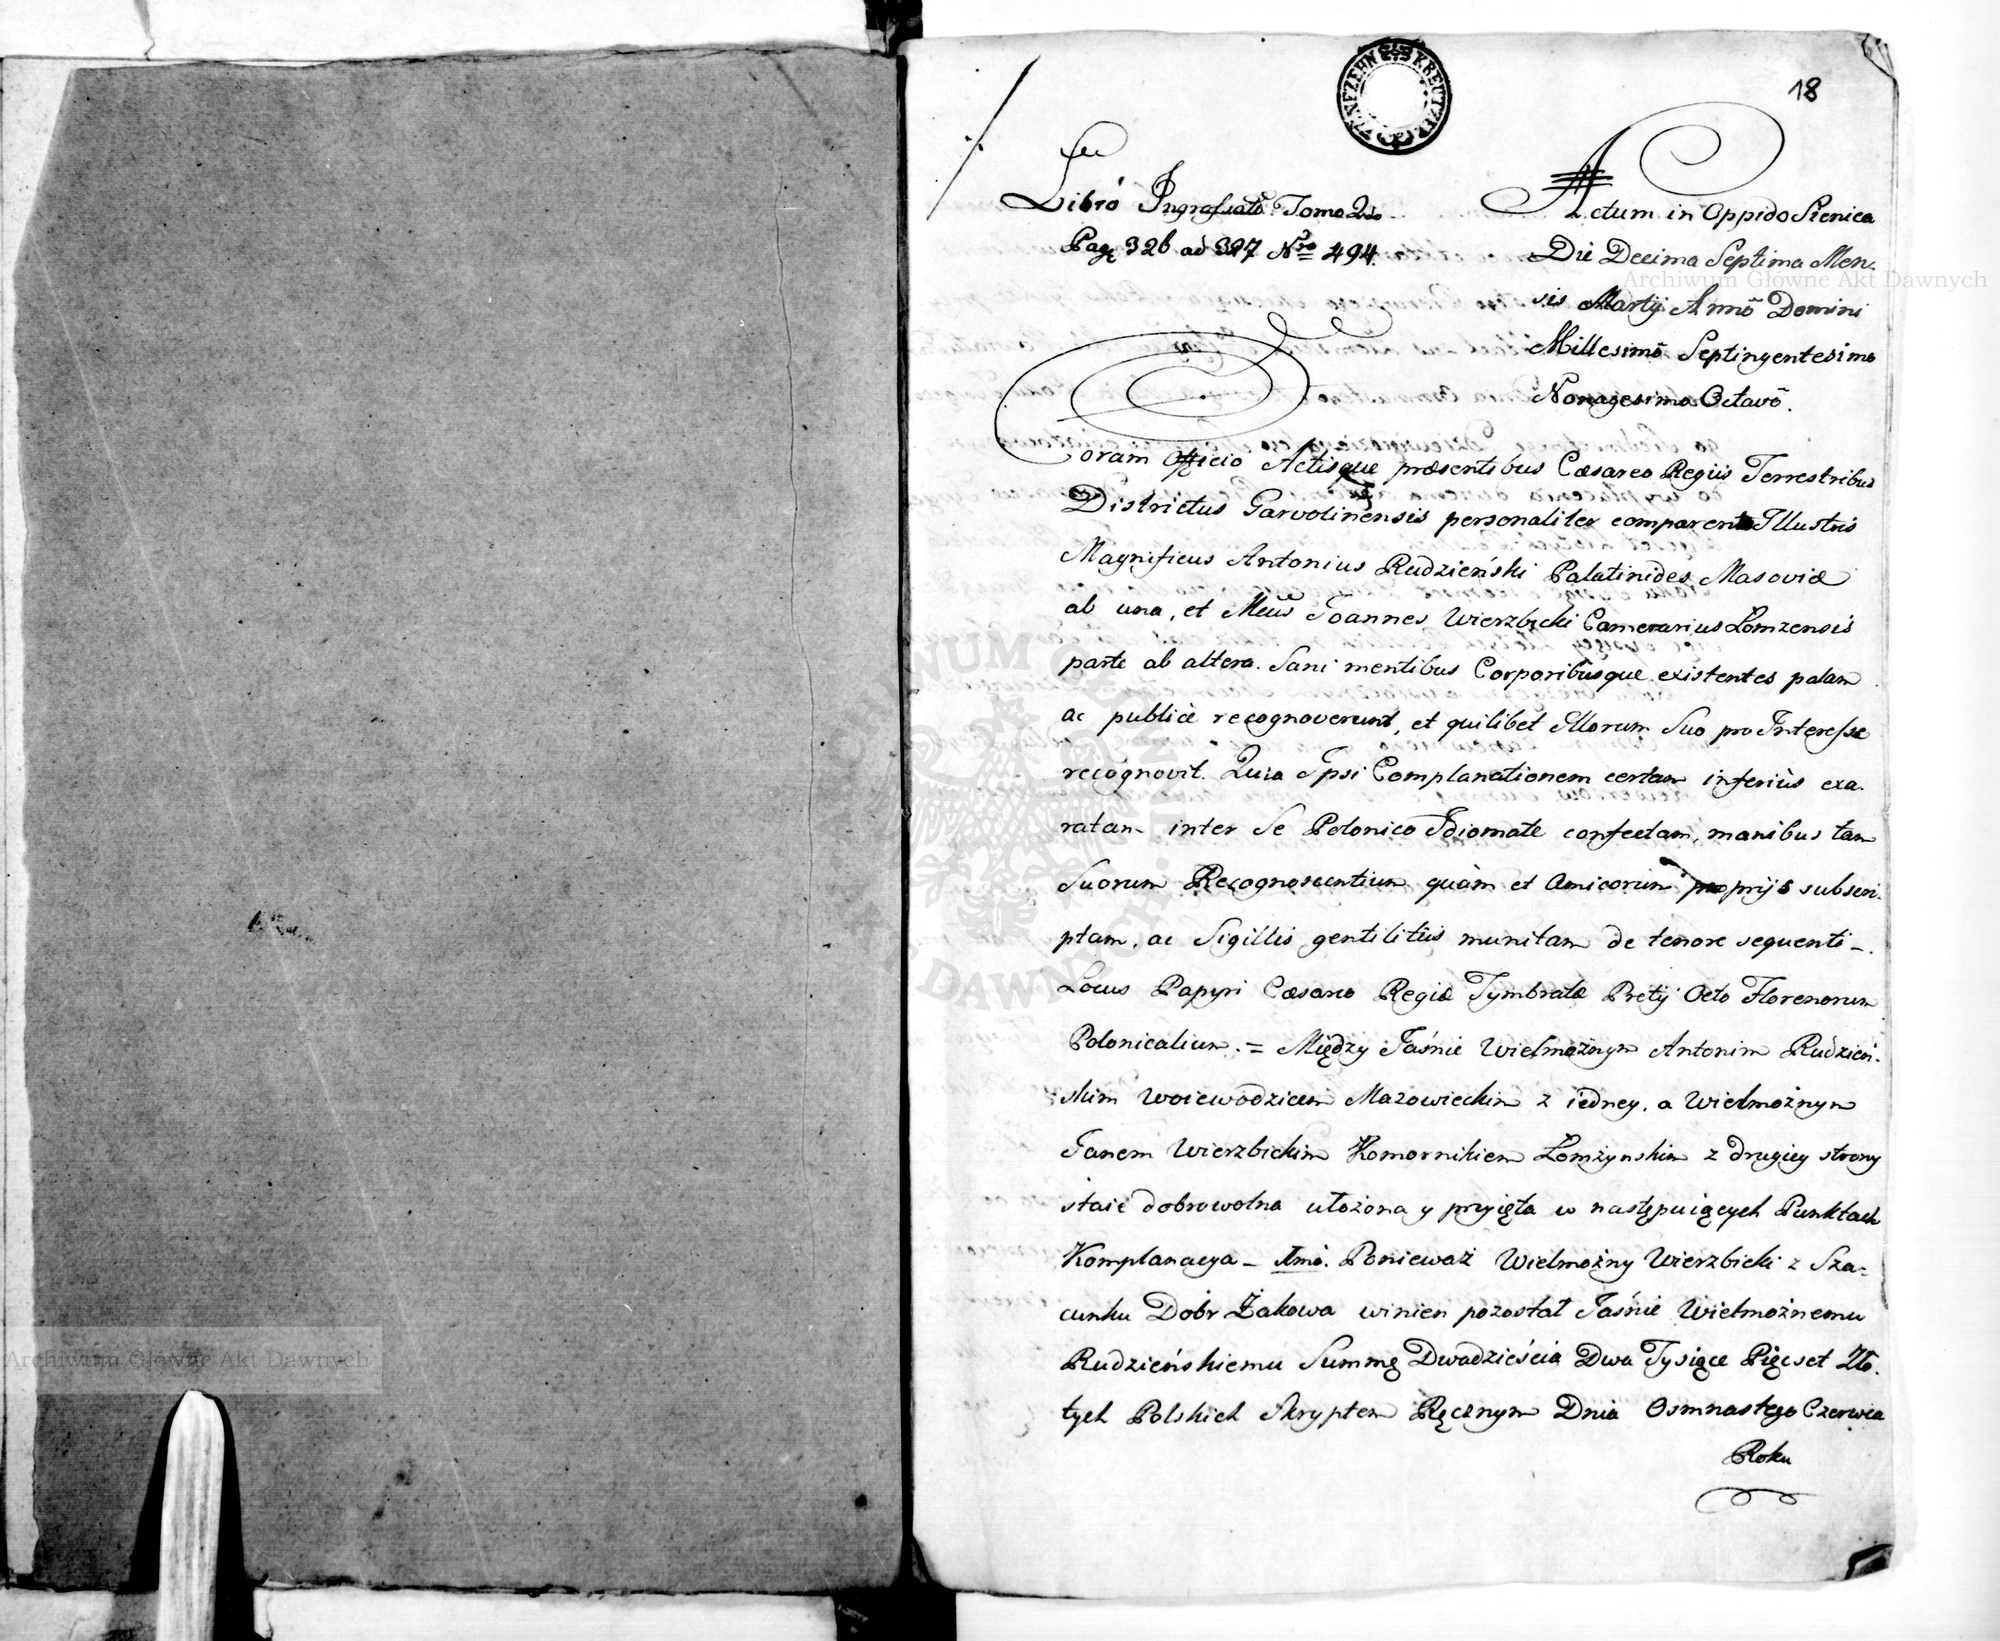 18
FÜNFZEHN KREUTZER
Libró Ingrossatō Tomo 2do
Pagę 326 ad 327 Nro 494.
Actum in Oppido Sienica
Die Decima Septima Men-
sis Martij Annō Domini
Millesimō Septingentesimo
Nonagesimo Octavō.
Coram Officio Actisque præsentibus Cæsareo Regiis Terrestribus
Districtus Garvolinensis personaliter comparentes Illustris
Magnificus Antonius Rudzieński Palatinides Masoviæ
ab una, et Mcus Joannes Wierzbicki Camerarius Lomzensis
parte ab altera. Sani mentibus Corporibusque existentes palam
ac publicè recognoverunt, et quilibet Illorum Suo pro Interesse
recognovit. Quia Ipsi Complanationem certam inferiùs exa-
ratam inter Se Polonico Idiomate confectam, manibus tam
Suorum Recognoscentium quàm et Amicorum proprijs subscri-
ptam, ac Sigillis gentilitiis munitam de tenore sequenti –.
Locus Papyri Cæsareo Regiæ Tymbratæ Pretij Octo Florenorum
Polonicalium. = Między Jaśnie Wielmożnym Antonim Rudzień-
skim Woiewodzicem Mazowieckim z iedney, a Wielmożnym
Janem Wierzbickim Komornikiem Łomżynskim z drugiey strony
staie dobrowolna ułożona y przyięta w następuiących Punktach
Komplanacya – 1mó. Ponieważ Wielmożny Wierzbicki z Sza-
cunku Dóbr Żakowa winien pozostał Jaśnie Wielmożnemu
Rudzieńskiemu Summę Dwadzieścia Dwa Tysiące Pięcset Zło-
tych Polskich Skryptem Ręcznym Dnia Osmnastego Czerwca
Roku
Archiwum Główne Akt Dawnych
Archiwum Główne Akt Dawnych